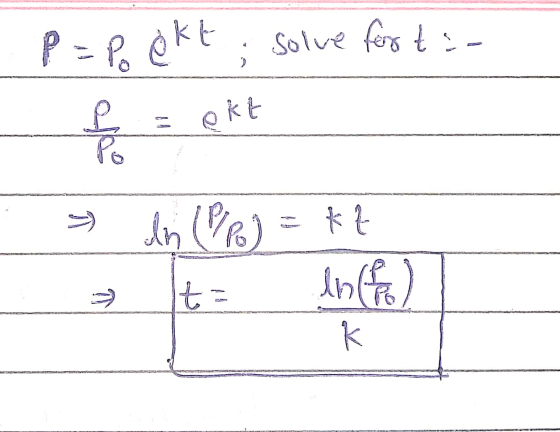 P = P₀ e^{kt} ; solve for t :-
P/P₀ = e^{kt}
⇒ ln(P/P₀) = kt
⇒ t = ln(P/P₀)/k